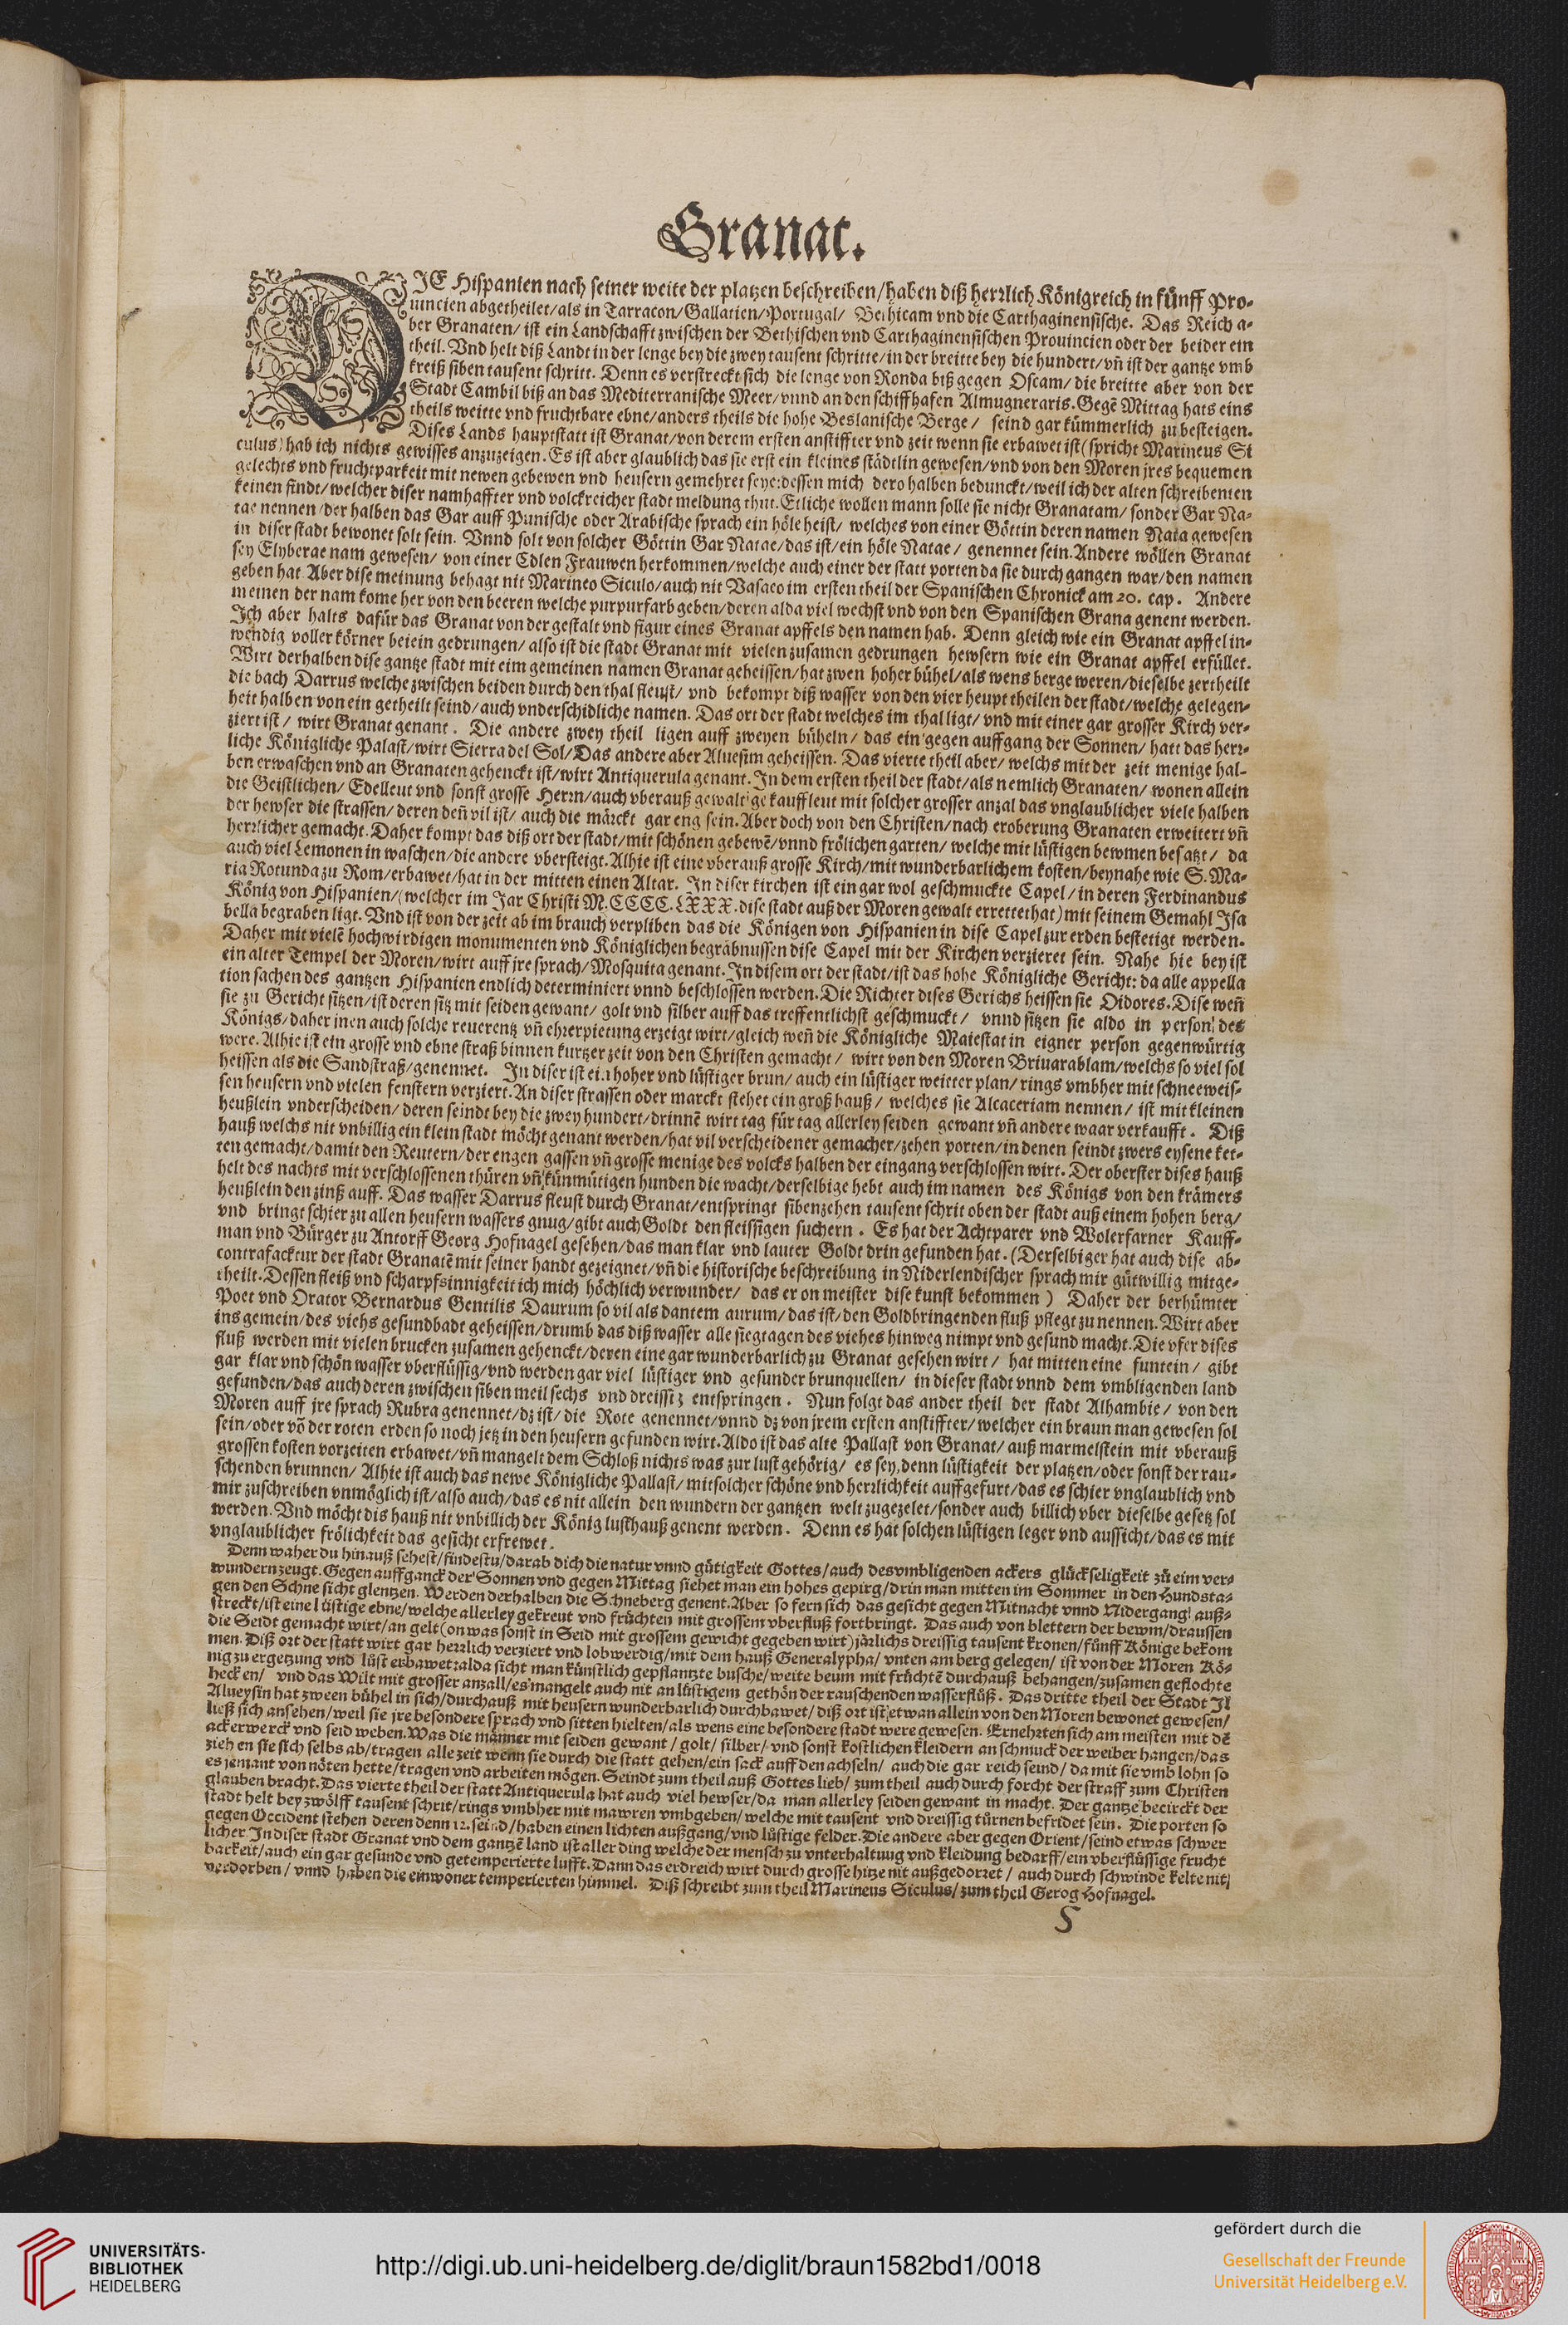 Granat.
DIE Hispanien nach seiner weite der platzen beschreiben/haben diß herrlich Königreich in fünff Pro-
uincien abgetheilet/als in Tarracon/Gallatien/Portugal/ Bethicam vnd die Carthaginensische. Das Reich a-
ber Granaten/ ist ein Landschafft zwischen der Bethischen vnd Carthaginensischen Prouincien oder der beider ein
theil. Vnd helt diß Landt in der lenge bey die zwey tausent schritte/in der breitte bey die hundert/vñ ist der gantze vmb
kreiß siben tausent schritt. Denn es verstreckt sich die lenge von Ronda biß gegen Oscam/die breitte aber von der
Stadt Cambil biß an das Mediterranische Meer/vnnd an den schiffhafen Almugneraris. Gegē Mittag hats eins
theils weitte vnd fruchtbare ebne/anders theils die hohe Beslanische Berge/ seind gar kümmerlich zu besteigen.
Dises Lands hauptstatt ist Granat/von derem ersten anstiffter vnd zeit wenn sie erbawet ist (spricht Marineus Si
culus) hab ich nichts gewisses anzuzeigen. Es ist aber glaublich das sie erst ein kleines städtlin gewesen/vnd von den Moren jres bequemen
gelechts vnd fruchtparkeit mit newen gebewen vnd heusern gemehret seye: dessen mich dero halben bedunckt/weil ich der alten schreibenten
keinen findt/welcher diser namhaffter vnd volckreicher stadt meldung thut. Etliche wollen mann solle sie nicht Granatam/ sonder Gar Na-
tae nennen/der halben das Gar auff Punische oder Arabische sprach ein höle heist/ welches von einer Göttin deren namen Nata gewesen
in diser stadt bewonet solt sein. Vnnd solt von solcher Göttin Gar Natae/das ist/ein höle Natae/ genennet sein. Andere wöllen Granat
sey Elyberae nam gewesen/ von einer Edlen Frauwen herkommen/welche auch einer der statt porten da sie durch gangen war/den namen
geben hat Aber dise meinung behagt nit Marineo Siculo/auch nit Vasaeo im ersten theil der Spanischen Chronick am 20. cap. Andere
meinen der nam kome her von den beeren welche purpurfarb geben/deren alda viel wechst vnd von den Spanischen Grana genent werden.
Ich aber halts dafür das Granat von der gestalt vnd figur eines Granat apffels den namen hab. Denn gleich wie ein Granat apffel in-
wendig voller körner beiein gedrungen/ also ist die stadt Granat mit vielen zusamen gedrungen hewsern wie ein Granat apffel erfüllet.
Wirt derhalben dise gantze stadt mit eim gemeinen namen Granat geheissen/hat zwen hoher bühel/als wens berge weren/dieselbe zertheilt
die bach Darrus welche zwischen beiden durch den thal fleust/ vnd bekompt diß wasser von den vier heupt theilen der stadt/welche gelegen-
heit halben von ein getheilt seind/auch vnderschidliche namen. Das ort der stadt welches im thal ligt/ vnd mit einer gar grosser Kirch ver-
ziert ist/ wirt Granat genant. Die andere zwey theil ligen auff zweyen büheln/ das ein gegen auffgang der Sonnen/ hatt das herr-
liche Königliche Palast/wirt Sierra del Sol/Das andere aber Aluesim geheissen. Das vierte theil aber/ welchs mit der zeit menige hal-
ben erwaschen vnd an Granaten gehenckt ist/wirt Antiquerula genant. In dem ersten theil der stadt/als nemlich Granaten/ wonen allein
die Geistlichen/ Edelleut vnd sonst grosse Herrn/auch vberauß gewaltige kauffleut mit solcher grosser anzal das vnglaublicher viele halben
der hewser die strassen/ deren deñ vil ist/ auch die märckt gar eng sein. Aber doch von den Christen/nach eroberung Granaten erweitert vñ
herrlicher gemacht. Daher kompt das diß ort der stadt/mit schönen gebewē/vnnd frölichen garten/ welche mit lüstigen bewmen besatzt/ da
auch viel Lemonen in waschen/die andere vbersteigt. Alhie ist eine vberauß grosse Kirch/mit wunderbarlichem kosten/beynahe wie S. Ma-
ria Rotunda zu Rom/erbawet/hat in der mitten einen Altar. In diser kirchen ist ein gar wol geschmuckte Capel/in deren Ferdinandus
König von Hispanien/(welcher im Jar Christi M.CCCC.LXXX. dise stadt auß der Moren gewalt errettet hat) mit seinem Gemahl Isa
bella begraben ligt. Vnd ist von der zeit ab im brauch verpliben das die Königen von Hispanien in dise Capel zur erden bestetigt werden.
Daher mit vielē hochwirdigen monumenten vnd Königlichen begräbnussen dise Capel mit der Kirchen verzieret sein. Nahe hie bey ist
ein alter Tempel der Moren/wirt auff jre sprach/Mosquita genant. In disem ort der stadt/ist das hohe Königliche Gericht: da alle appella
tion sachen des gantzen Hispanien endlich determiniert vnnd beschlossen werden. Die Richter dises Gerichs heissen sie Oidores. Dise weñ
sie zu Gericht sitzen/ist deren sitz mit seiden gewant/ golt vnd silber auff das treffentlichst geschmuckt/ vnnd sitzen sie aldo in person des
Königs/daher inen auch solche reuerentz vñ ehrerpietung erzeigt wirt/gleich weñ die Königliche Maiestat in eigner person gegenwürtig
were. Alhie ist ein grosse vnd ebne straß binnen kurtzer zeit von den Christen gemacht/ wirt von den Moren Briuarablam/welchs so viel sol
heissen als die Sandstraß/genennet. In diser ist ein hoher vnd lüstiger brun/ auch ein lüstiger weitter plan/rings vmbher mit schneeweis-
sen heusern vnd vielen fenstern verziert. An diser strassen oder marckt stehet ein groß hauß/ welches sie Alcaceriam nennen/ ist mit kleinen
heußlein vnderscheiden/deren seindt bey die zwey hundert/drinnē wirt tag für tag allerley seiden gewant vñ andere waar verkaufft. Diß
hauß welchs nit vnbillig ein klein stadt möcht genant werden/hat vil verscheidener gemacher/zehen porten/in denen seindt zwers eysene ket-
ten gemacht/damit den Reutern/der engen gassen vñ grosse menige des volcks halben der eingang verschlossen wirt. Der oberster dises hauß
helt des nachts mit verschlossenen thüren vñ künmütigen hunden die wacht/derselbige hebt auch im namen des Königs von den krämers
heußlein den zinß auff. Das wasser Darrus fleust durch Granat/entspringt sibenzehen tausent schrit oben der stadt auß einem hohen berg/
vnd bringt schier zu allen heusern wassers gnug/gibt auch Goldt den fleissigen suchern. Es hat der Achtparer vnd Wolerfarner Kauff-
man vnd Bürger zu Antorff Georg Hofnagel gesehen/das man klar vnd lauter Goldt drin gefunden hat. (Derselbiger hat auch dise ab-
contrafacktur der stadt Granatē mit seiner handt gezeignet/vñ die historische beschreibung in Niderlendischer sprach mir gütwillig mitge-
theilt. Dessen fleiß vnd scharpfsinnigkeit ich mich höchlich verwunder/ das er on meister dise kunst bekommen) Daher der berhümter
Poet vnd Orator Bernardus Gentilis Daurum so vil als dantem aurum/das ist/den Goldbringenden fluß pflegt zu nennen. Wirt aber
ins gemein/des viehs gesundbadt geheissen/drumb das diß wasser alle siegtagen des viehes hinweg nimpt vnd gesund macht. Die vfer dises
fluß werden mit vielen brucken zusamen gehenckt/deren eine gar wunderbarlich zu Granat gesehen wirt/ hat mitten eine funtein/ gibt
gar klar vnd schön wasser vberflüssig/vnd werden gar viel lüstiger vnd gesunder brunquellen/ in dieser stadt vnnd dem vmbligenden land
gefunden/das auch deren zwischen siben meil sechs vnd dreissig entspringen. Nun folgt das ander theil der stadt Alhambie/ von den
Moren auff jre sprach Rubra genennet/dz ist/ die Rote genennet/vnnd dz von jrem ersten anstiffter/welcher ein braun man gewesen sol
sein/oder vō der roten erden so noch jetz in den heusern gefunden wirt. Aldo ist das alte Pallast von Granat/ auß marmelstein mit vberauß
grossen kosten vorzeiten erbawet/vñ mangelt dem Schloß nichts was zur lust gehörig/ es sey, denn lüstigkeit der platzen/oder sonst der rau-
schenden brunnen/ Alhie ist auch das newe Königliche Pallast/ mit solcher schöne vnd herrlichkeit auffgefurt/das es schier vnglaublich vnd
mir zuschreiben vnmöglich ist/also auch/das es nit allein den wundern der gantzen welt zugezelet/sonder auch billich vber dieselbe gesetz sol
werden. Vnd möcht dis hauß nit vnbillich der König lusthauß genent werden. Denn es hat solchen lüstigen leger vnd aussicht/das es mit
vnglaublicher frölichkeit das gesicht erfrewet.
Denn waher du hinauß sehest/findestu/darab dich die natur vnnd gütigkeit Gottes/auch des vmbligenden ackers glückseligkeit zü eim ver-
wundern zeugt. Gegen auffganck der Sonnen vnd gegen Mittag siehet man ein hohes gepirg/drin man mitten im Sommer in den Hundsta-
gen den Schne sicht glentzen. Werden derhalben die Schneberg genent. Aber so fern sich das gesicht gegen Mitnacht vnnd Nidergang auß-
streckt/ist eine lüstige ebne/welche allerley gekreut vnd früchten mit grossem vberfluß fortbringt. Das auch von blettern der bewm/draussen
die Seidt gemacht wirt/an gelt (on was sonst in Seid mit grossem gewicht gegeben wirt) järlichs dreissig tausent kronen/fünff Könige bekom
men. Diß ort der statt wirt gar herrlich verziert vnd lobwerdig/mit dem hauß Generalypha/ vnten am berg gelegen/ ist von der Moren Kö-
nig zu ergetzung vnd lüst erbawet: alda sicht man künstlich gepflantzte busche/weite beum mit früchtē durchauß behangen/zusamen geflochte
hecken/ vnd das Wilt mit grosser anzall/es mangelt auch nit an lüstigem gethön der rauschenden wasserflüß. Das dritte theil der Stadt Il
Alueysin hat zween bühel in sich/durchauß mit heusern wunderbarlich durchbawet/ diß ort ist etwan allein von den Moren bewonet gewesen/
ließ sich ansehen/weil sie jre besondere sprach vnd sitten hielten/als wens eine besondere stadt were gewesen. Ernehrten sich am meisten mit dē
ackerwerck vnd seid weben. Was die männer mit seiden gewant/ golt/ silber/ vnd sonst kostlichen kleidern an schmuck der weiber hangen/das
ziehen sie sich selbs ab/tragen alle zeit wenn sie durch die statt gehen/ein sack auff den achseln/ auch die gar reich seind/ da mit sie vmb lohn so
es jemant von nöten hette/tragen vnd arbeiten mögen. Seindt zum theil auß Gottes lieb/ zum theil auch durch forcht der straff zum Christen
glauben bracht. Das vierte theil der statt Antiquerula hat auch viel hewser/da man allerley seiden gewant in macht. Der gantze becirckt der
stadt helt bey zwölff tausent schrit/rings vmbher mit mawren vmbgeben/welche mit tausent vnd dreissig türnen befridet sein. Die porten so
gegen Occident stehen deren denn 12. seind/haben einen lichten außgang/vnd lüstige felder. Die andere aber gegen Orient/seind etwas schwer
licher In diser stadt Granat vnd dem gantzē land ist aller ding welche der mensch zu vnterhaltuug vnd kleidung bedarff/ein vberflüssige frucht
barkeit/auch ein gar gesunde vnd getemperierte lufft. Dann das erdreich wirt durch grosse hitze nit außgedorret/ auch durch schwinde kelte nit
verdorben/ vnnd haben die einwoner temperierten himmel. Diß schreibt zum theil Marineus Siculus/zum theil Gerog Hofnagel.
S
UNIVERSITÄTS-
BIBLIOTHEK
HEIDELBERG
http://digi.ub.uni-heidelberg.de/diglit/braun1582bd1/0018
gefördert durch die
Gesellschaft der Freunde
Universität Heidelberg e.V.